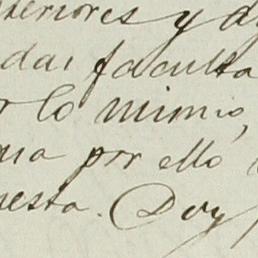 teriores y a
das faculta
r lo mismo,
na por ello
uesta. Doy